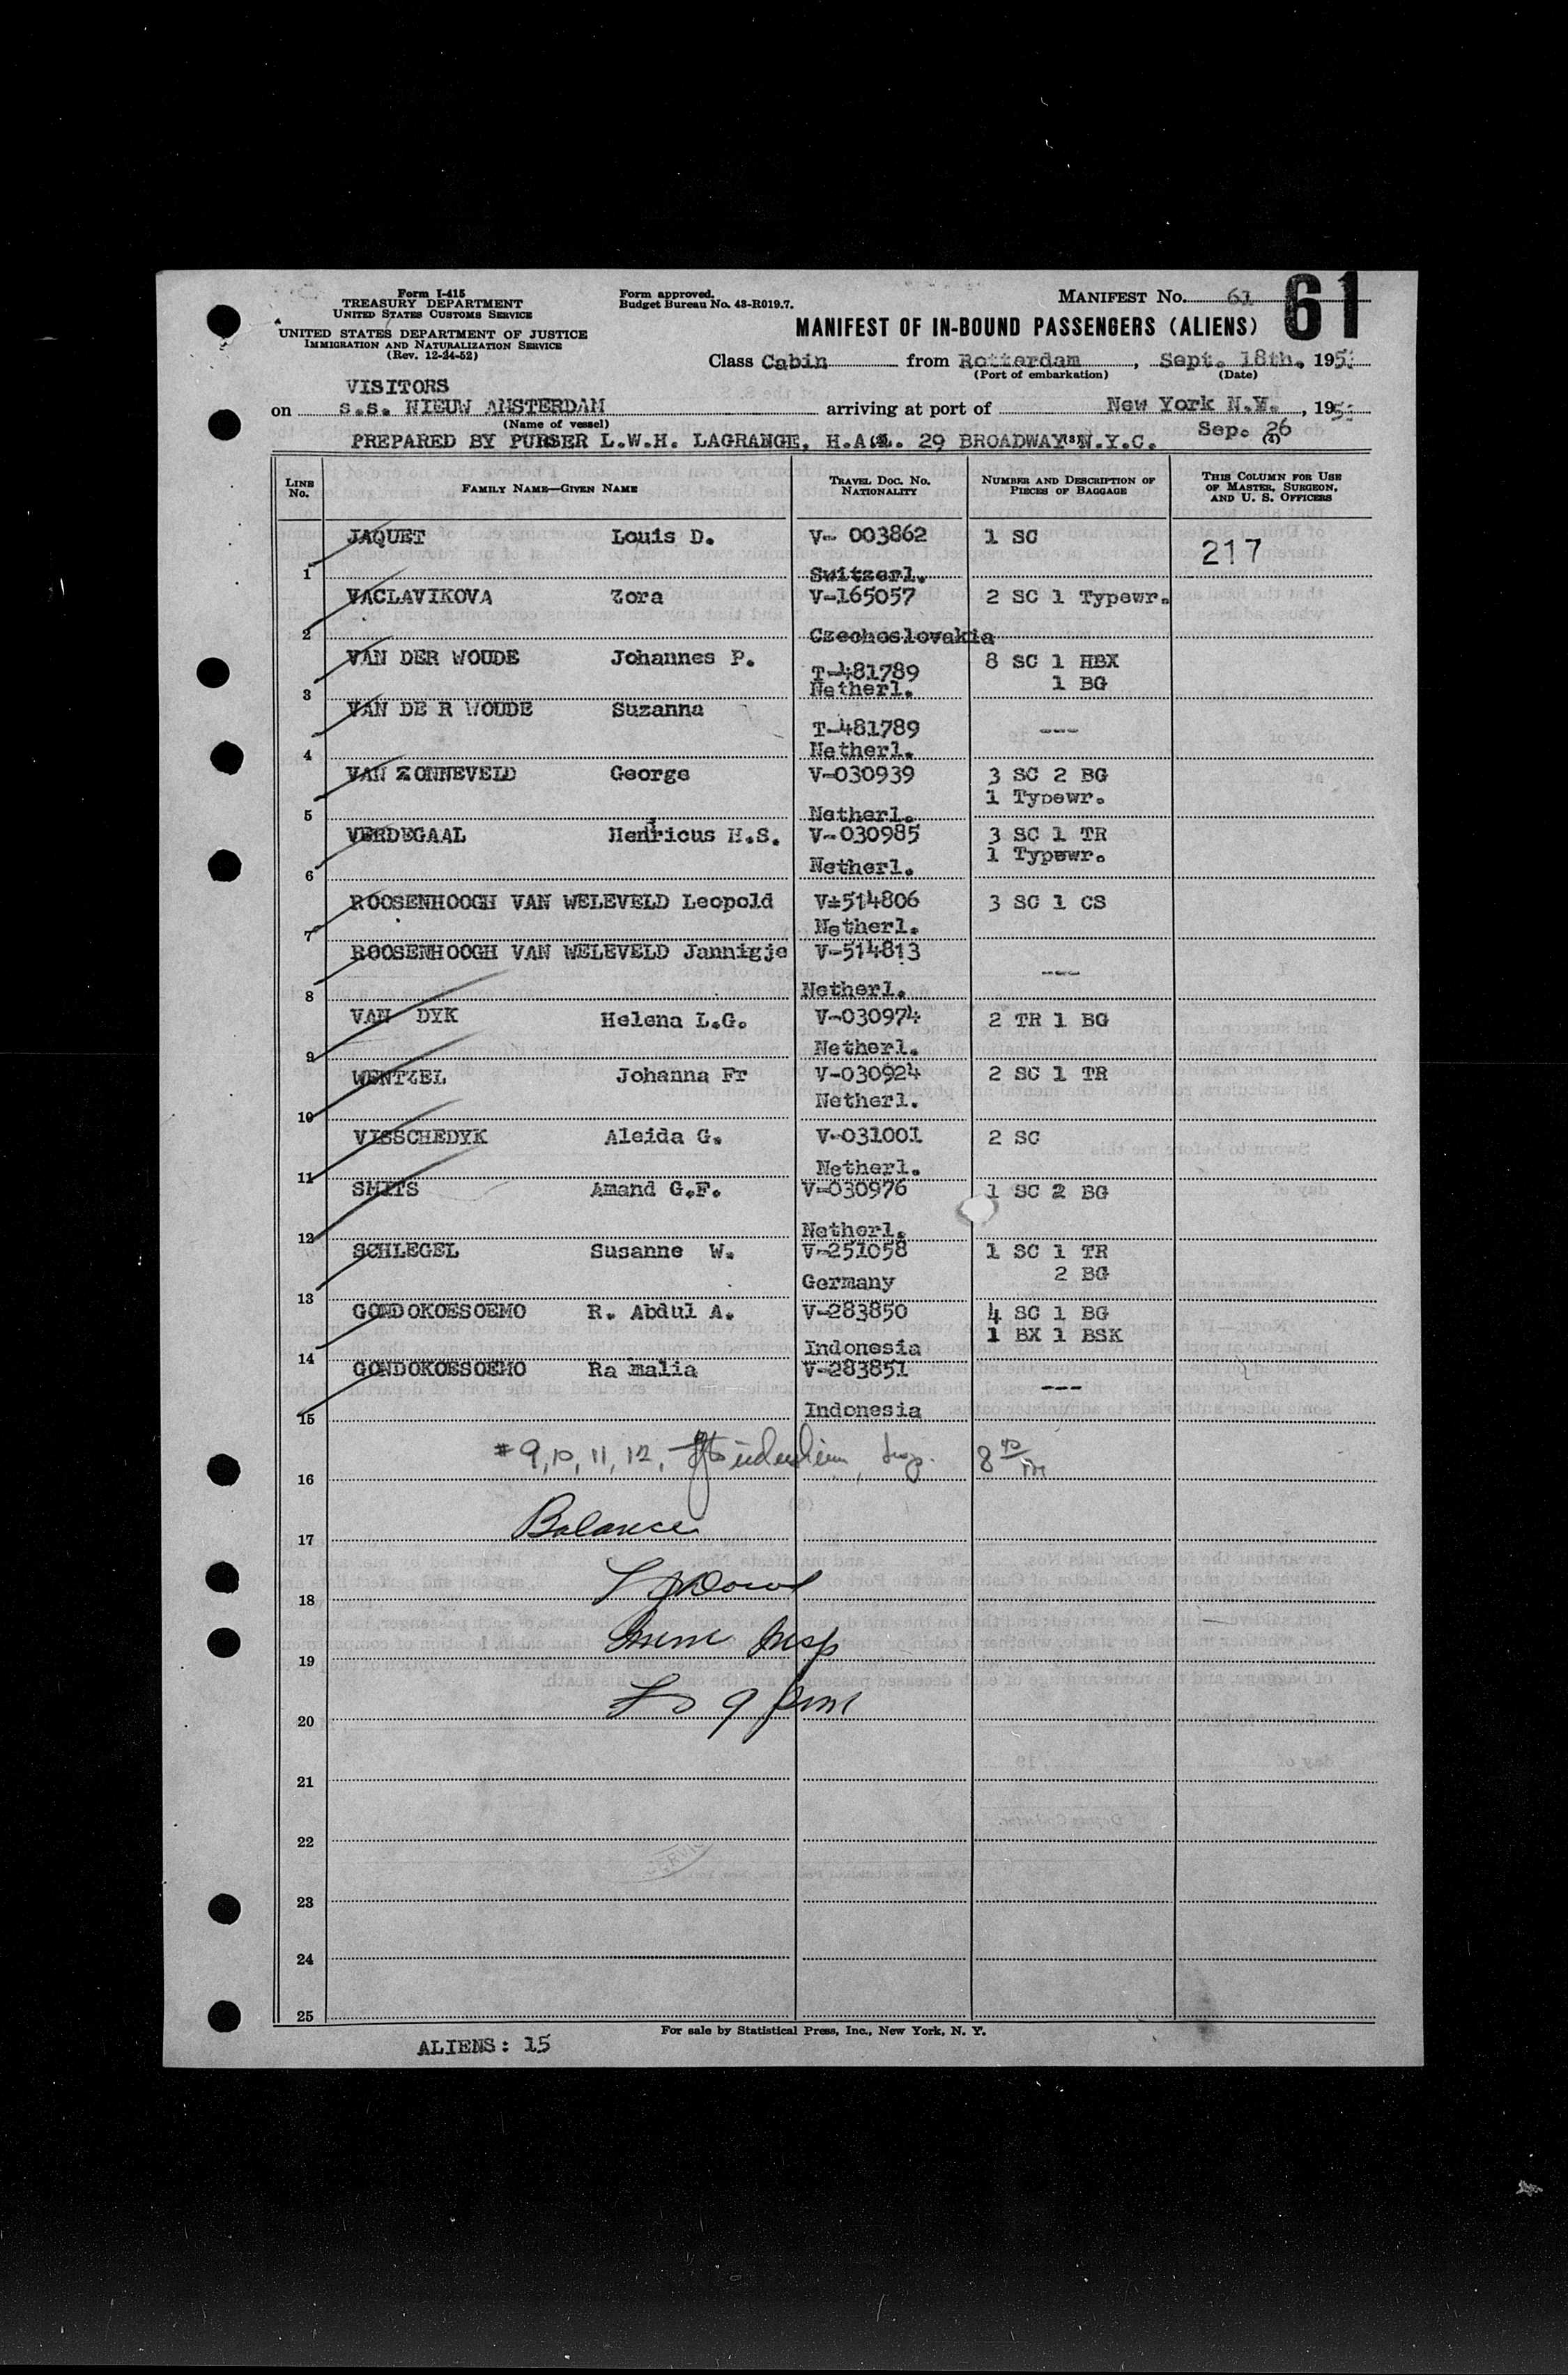 Form I-415
TREASURY DEPARTMENT
UNITED STATES CUSTOMS SERVICE
UNITED STATES DEPARTMENT OF JUSTICE
IMMIGRATION AND NATURALIZATION SERVICE
(Rev. 12-24-52)
Form approved.
Budget Bureau No. 43-R019.7.
MANIFEST No. 61
61
MANIFEST OF IN-BOUND PASSENGERS (ALIENS)
Class Cabin from Rotterdam, Sept. 18th, 195
(Port of embarkation) (Date)
VISITORS
on s.s. NIEUW AMSTERDAM arriving at port of New York N.Y., 195
(Name of vessel) Sep. 26
PREPARED BY PURSER L.W.H. LAGRANGE, H.A.L. 29 BROADWAY N.Y.C.
(2) (3) (4)
LINE No. FAMILY NAME—GIVEN NAME TRAVEL DOC. NO. NATIONALITY NUMBER AND DESCRIPTION OF PIECES OF BAGGAGE THIS COLUMN FOR USE OF MASTER, SURGEON, AND U. S. OFFICERS
JAQUET Louis D. V- 003862 1 SC 217
1 Switzerl.
VACLAVIKOVA Zora V-165057 2 SC 1 Typewr.
2 Czechoslovakia
VAN DER WOUDE Johannes P. T-481789 8 SC 1 HBX
3 Netherl. 1 BG
VAN DE R WOUDE Suzanna T-481789 ---
4 Netherl.
VAN ZONNEVELD George V-030939 3 SC 2 BG
1 Typewr.
5 Netherl.
VERDEGAAL Henricus H.S. V-030985 3 SC 1 TR
1 Typewr.
6 Netherl.
ROOSENHOOGH VAN WELEVELD Leopold V-514806 3 SC 1 CS
7 Netherl.
ROOSENHOOGH VAN WELEVELD Jannigje V-514813 ---
8 Netherl.
VAN DYK Helena L.G. V-030974 2 TR 1 BG
9 Netherl.
WENTZEL Johanna Fr V-030924 2 SC 1 TR
10 Netherl.
VISSCHEDYK Aleida G. V-031001 2 SC
11 Netherl.
SMITS Amand G.F. V-030976 1 SC 2 BG
12 Netherl.
SCHLEGEL Susanne W. V-251058 1 SC 1 TR
2 BG
13 Germany
GONDOKOESOEMO R. Abdul A. V-283850 4 SC 1 BG
1 BX 1 BSK
14 Indonesia
GONDOKOESOEMO Ra malia V-283851 ---
15 Indonesia
# 9, 10, 11, 12,
16
Balance
17
18
Imm Insp
19
20
21
22
23
24
25
For sale by Statistical Press, Inc., New York, N. Y.
ALIENS: 15